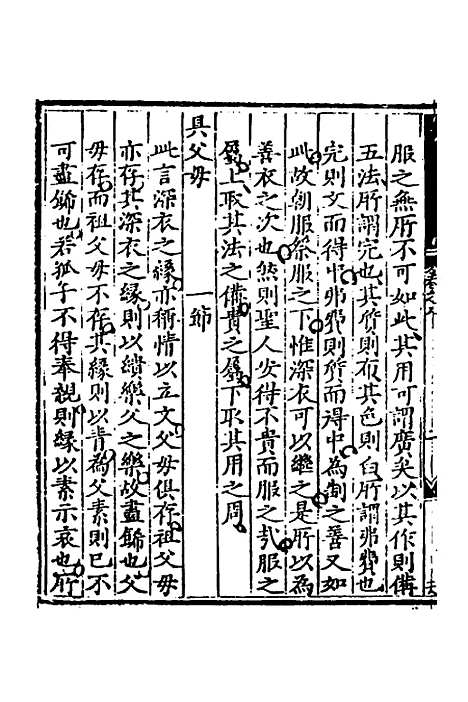 服之無所不可如此其用可謂廣矣以其作則備
五法所謂完也其質則布其色則白所謂弗費也
完則文而得中弗費則質而得中為制之善又如
此故朝服祭服之下惟深衣可以繼之是所以為
善衣之次也然則聖人安得不貴而服之哉服之
屬上取其法之備貴之屬下取其用之周
具父母　一節
此言深衣之緣亦稱情以立文父母俱存祖父母
亦存其深衣之緣則以繢樂父之樂故盡飾也父
母存而祖父母不存其緣則以青為父素則已不
可盡飾也若孤子不得奉親則緣以素示哀也所